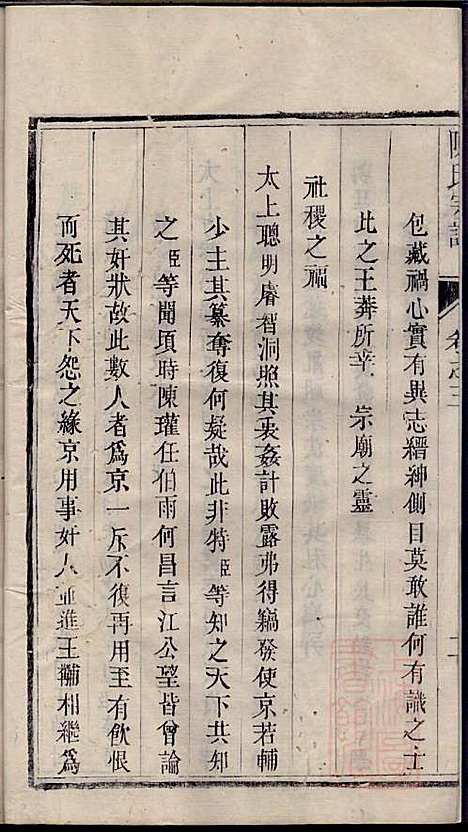 陳氏宗譜
卷之三
二
包藏禍心實有異志縉紳側目莫敢誰何有識之士
此之王莽所幸
宗廟之靈
社稷之福
太上聰明睿智洞照其衷姦計敗露弗得竊發使京若輔
少主其纂奪復何疑哉此非特臣等知之天下共知
之臣等聞頃時陳瓘任伯雨何昌言江公望皆曾論
其奸狀故此數人者爲京一斥不復再用至有飲恨
而死者天下怨之緣京用事奸人並進王黼相繼爲